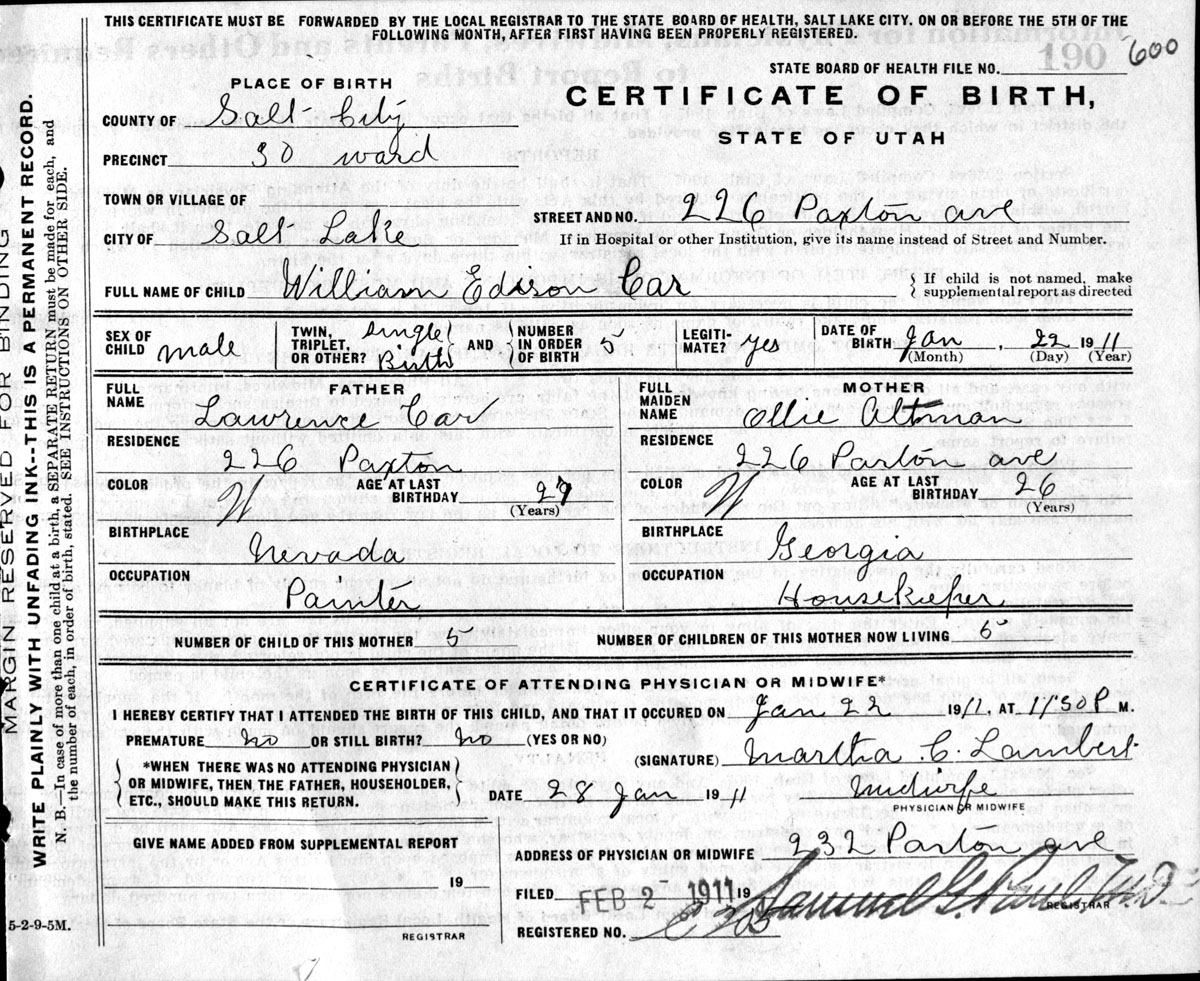 THIS CERTIFICATE MUST BE FORWARDED BY THE LOCAL REGISTRAR TO THE STATE BOARD OF HEALTH, SALT LAKE CITY, ON OR BEFORE THE 5TH OF THE
FOLLOWING MONTH, AFTER FIRST HAVING BEEN PROPERLY REGISTERED.
190 600
STATE BOARD OF HEALTH FILE NO.
PLACE OF BIRTH
CERTIFICATE OF BIRTH,
STATE OF UTAH
COUNTY OF Salt City
PRECINCT 30 ward
TOWN OR VILLAGE OF
STREET AND NO. 226 Paxton ave
CITY OF Salt Lake
If in Hospital or other Institution, give its name instead of Street and Number.
FULL NAME OF CHILD William Edison Car
If child is not named, make
supplemental report as directed
SEX OF CHILD male
TWIN, TRIPLET, OR OTHER? Single Birth
AND NUMBER IN ORDER OF BIRTH 5
LEGITI-MATE? yes
DATE OF BIRTH Jan, 22 1911
(Month) (Day) (Year)
FATHER
FULL NAME Lawrence Car
RESIDENCE
226 Paxton
COLOR W AGE AT LAST BIRTHDAY 27
(Years)
BIRTHPLACE
Nevada
OCCUPATION
Painter
MOTHER
FULL MAIDEN NAME Ollie Altman
RESIDENCE
226 Paxton ave
COLOR W AGE AT LAST BIRTHDAY 26
(Years)
BIRTHPLACE
Georgia
OCCUPATION
Housekieper
NUMBER OF CHILD OF THIS MOTHER 5
NUMBER OF CHILDREN OF THIS MOTHER NOW LIVING 5
CERTIFICATE OF ATTENDING PHYSICIAN OR MIDWIFE*
I HEREBY CERTIFY THAT I ATTENDED THE BIRTH OF THIS CHILD, AND THAT IT OCCURED ON Jan 22 1911, AT 1130 P M.
PREMATURE no OR STILL BIRTH? no (YES OR NO)
(SIGNATURE) Martha C. Lambert
*WHEN THERE WAS NO ATTENDING PHYSICIAN
OR MIDWIFE, THEN THE FATHER, HOUSEHOLDER,
ETC., SHOULD MAKE THIS RETURN.
DATE 28 Jan 1911
Midwife
PHYSICIAN OR MIDWIFE
GIVE NAME ADDED FROM SUPPLEMENTAL REPORT
19
REGISTRAR
ADDRESS OF PHYSICIAN OR MIDWIFE 232 Paxton ave
FILED FEB 2- 1911 19
Samuel G. Paul M.D.
REGISTRAR
REGISTERED NO.
5-2-9-5M.
MARGIN RESERVED FOR BINDING
WRITE PLAINLY WITH UNFADING INK---THIS IS A PERMANENT RECORD.
N. B.—In case of more than one child at a birth, a SEPARATE RETURN must be made for each, and
the number of each, in order of birth, stated. SEE INSTRUCTIONS ON OTHER SIDE.